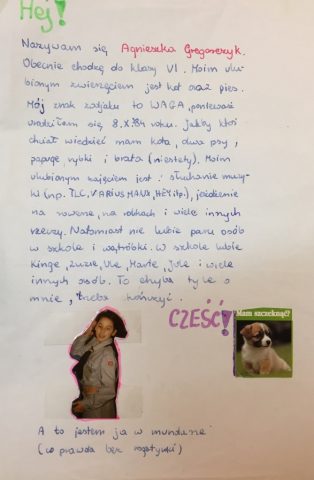 Hej!
Nazywam się Agnieszka Gregorczyk.
Obecnie chodzę do klasy VI. Moim ulu-
bionym zwierzęciem jest kot oraz pies.
Mój znak zodiaku to WAGA, ponieważ
urodziłam się 8.X.84 roku. Jakby ktoś
chciał wiedzieć mam kota, dwa psy,
papugę, rybki i brata (niestety). Moim
ulubionym zajęciem jest: słuchanie muzy-
ki (np. TLC, VARIUS MANX, HEY itp.), jeżdżenie
na rowerze, na rolkach i wiele innych
rzeczy. Natomiast nie lubię paru osób
w szkole i wątróbki. W szkole lubię
Kingę, Zuzię, Ulę, Martę, Julę i wiele
innych osób. To chyba tyle o
mnie, trzeba kończyć.
CZEŚĆ!
Mam szczeknąć?
A to jestem ja w mundurze
(co prawda bez rogatywki)